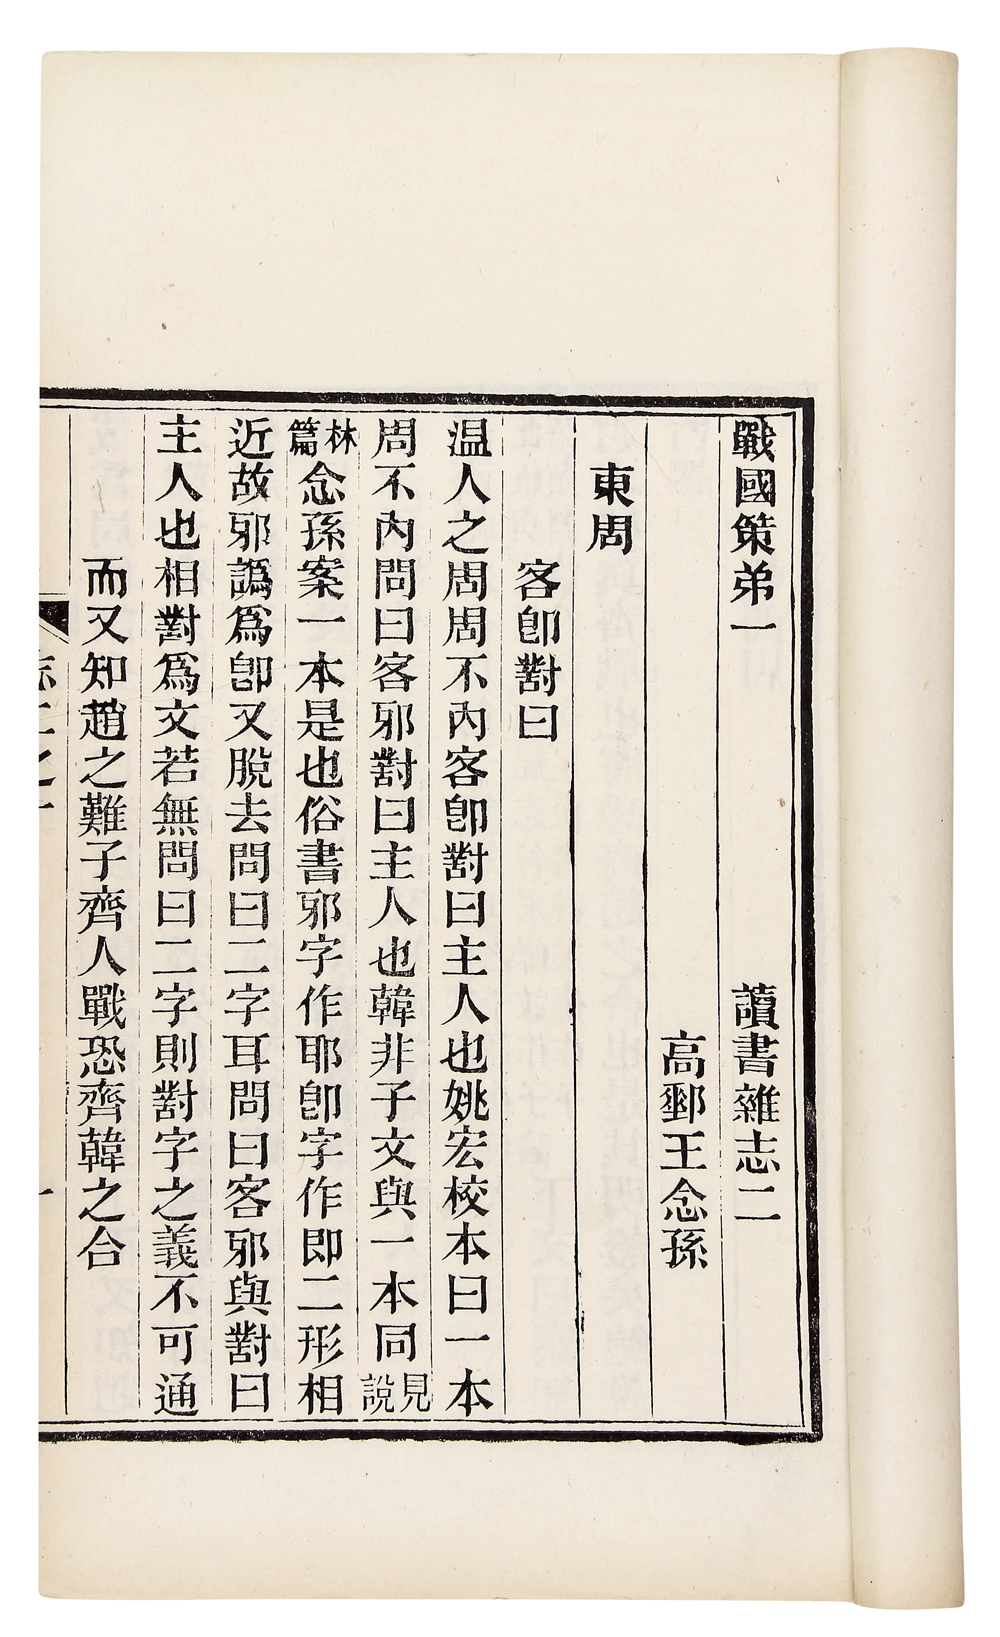 戰國策弟一 讀書雜志二
高郵王念孫
東周
客卽對曰
温人之周周不內客卽對曰主人也姚宏校本曰一本
周不內問曰客邪對曰主人也韓非子文與一本同見說
林篇念孫案一本是也俗書邪字作耶卽字作即二形相
近故邪譌爲卽又脫去問曰二字耳問曰客邪與對曰
主人也相對爲文若無問曰二字則對字之義不可通
而又知趙之難子齊人戰恐齊韓之合
志二之一
一